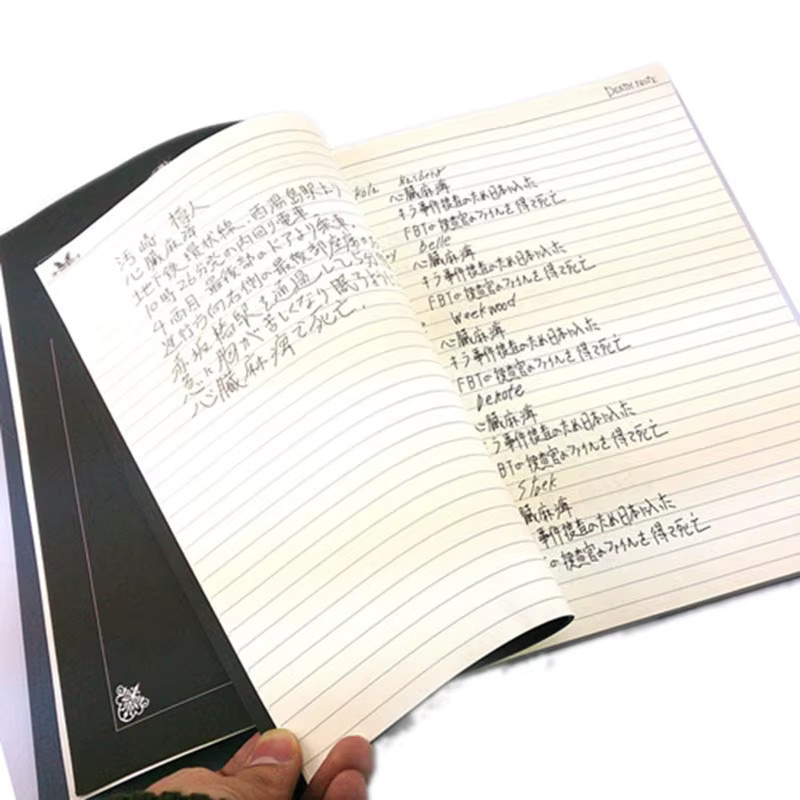 心臓麻痺
地下鉄、環状線、西湯島駅より
10時26分発の内回り電車
4両目、最後部のドアより乗車
進行方向右側の最後部座席
赤坂橋駅を通過して5分
急に胸が苦しくなり眠るように
心臓麻痺で死亡.
DEATH NOTE
心臓麻痺
キラ事件捜査のため日本に入った
FBIの捜査官のファイルを得て死亡
Belle
心臓麻痺
キラ事件捜査のため日本に入った
FBIの捜査官のファイルを得て死亡
Weekwood
心臓麻痺
キラ事件捜査のため日本に入った
FBIの捜査官のファイルを得て死亡
Denote
臓麻痺
ラ事件捜査のため日本に入った
BIの捜査官のファイルを得て死亡
Stack
臓麻痺
事件捜査のため日本に入った
の捜査官のファイルを得て死亡